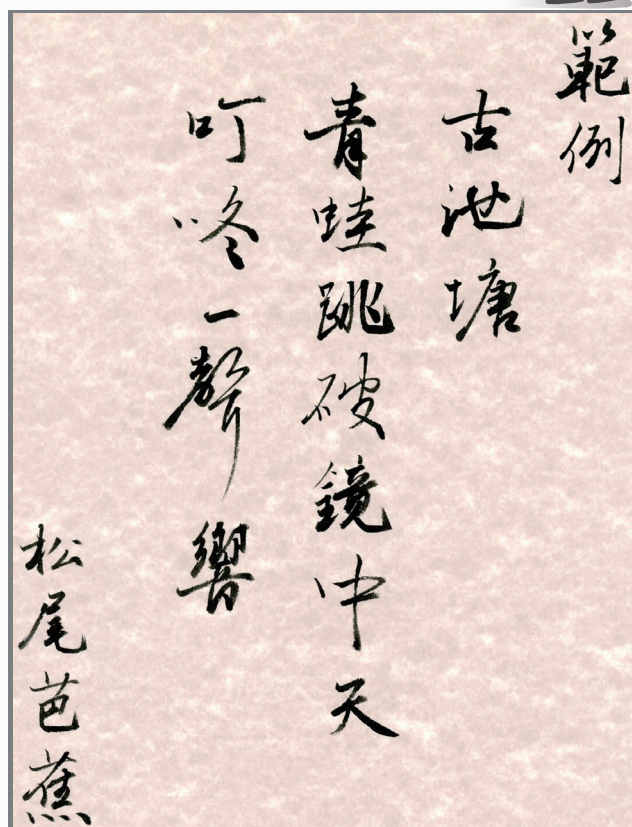 範例
古池塘
青蛙跳破鏡中天
叮咚一聲響
松尾芭蕉